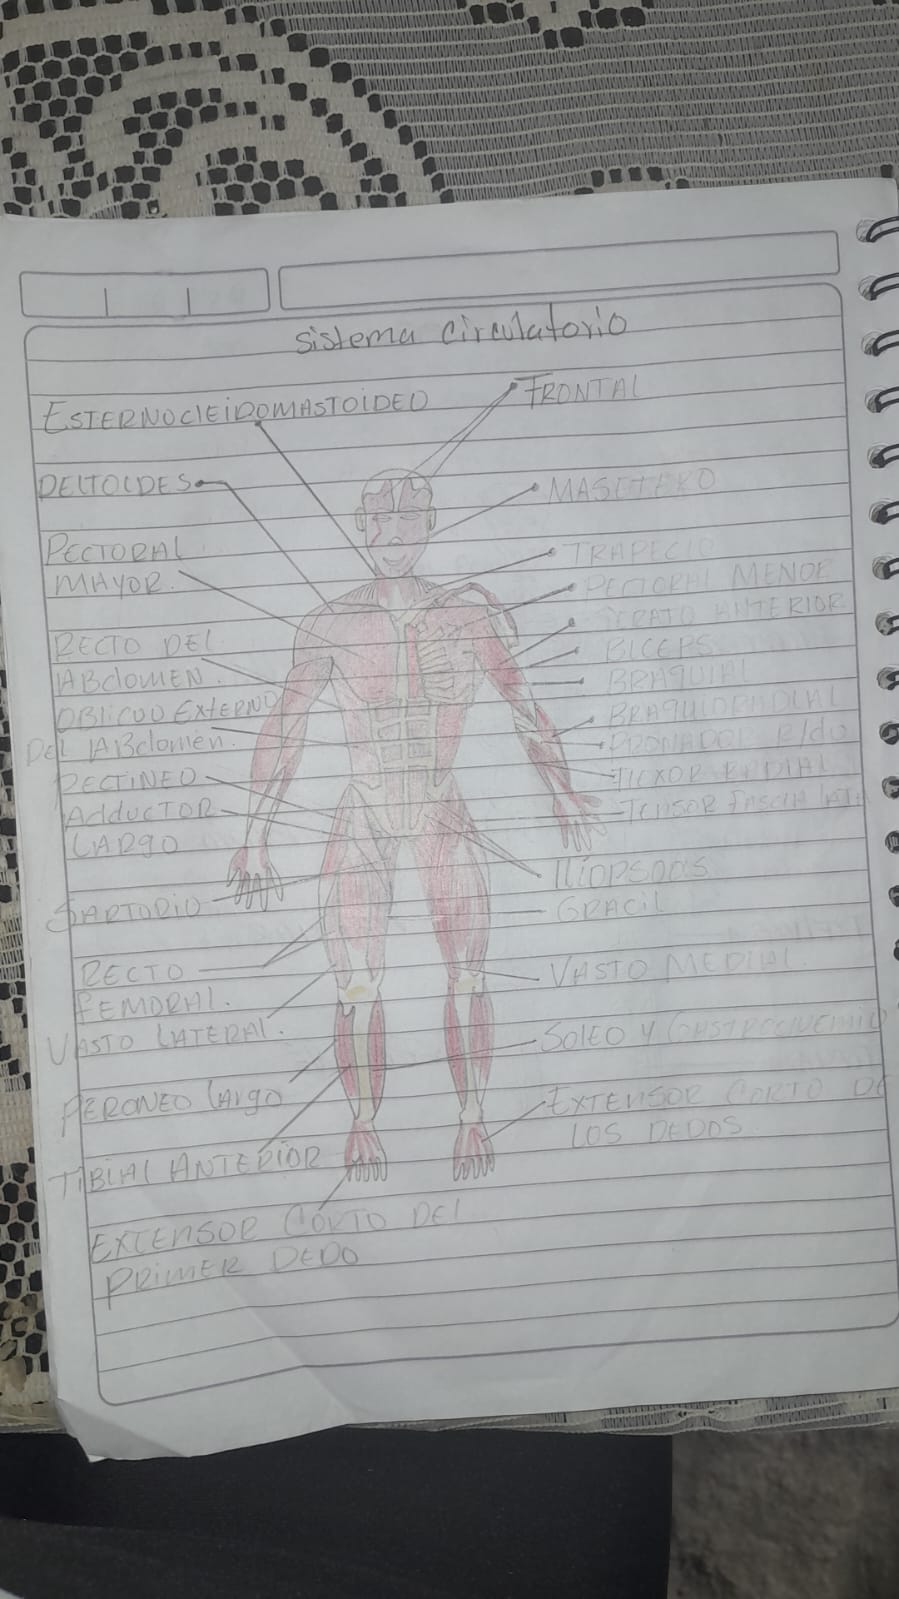 sistema circulatorio
ESTERNOCLEIDOMASTOIDEO
FRONTAL
DELTOIDES
MASETERO
PECTORAL
MAYOR.
TRAPECIO
PECTORAL MENOR
SERATO ANTERIOR
RECTO DEL
ABdOMEN.
BICEPS
BRAQUIAL
OBLICUO EXTERNO
DEL ABdomen.
BRAQUIORADIAL
PRONADOR
PECTINEO
AdducTOR
LARGO
TENSOR FASCIA LATA
ILIOPSOAS
SARTORIO
GRACIL
RECTO
FEMORAL.
VASTO MEDIAL.
VASTO LATERAL.
SOLEO Y GASTROCNEMIO
PERONEO LArgo
EXTENSOR CORTO DE
LOS DEDOS
TIBIAL ANTERIOR
EXTENSOR CORTO DEL
PRIMER DEDO